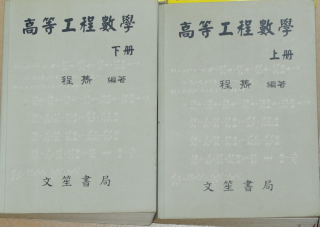 高等工程數學
下册
程雋 編著
文笙書局
高等工程數學
上册
程雋 編著
文笙書局